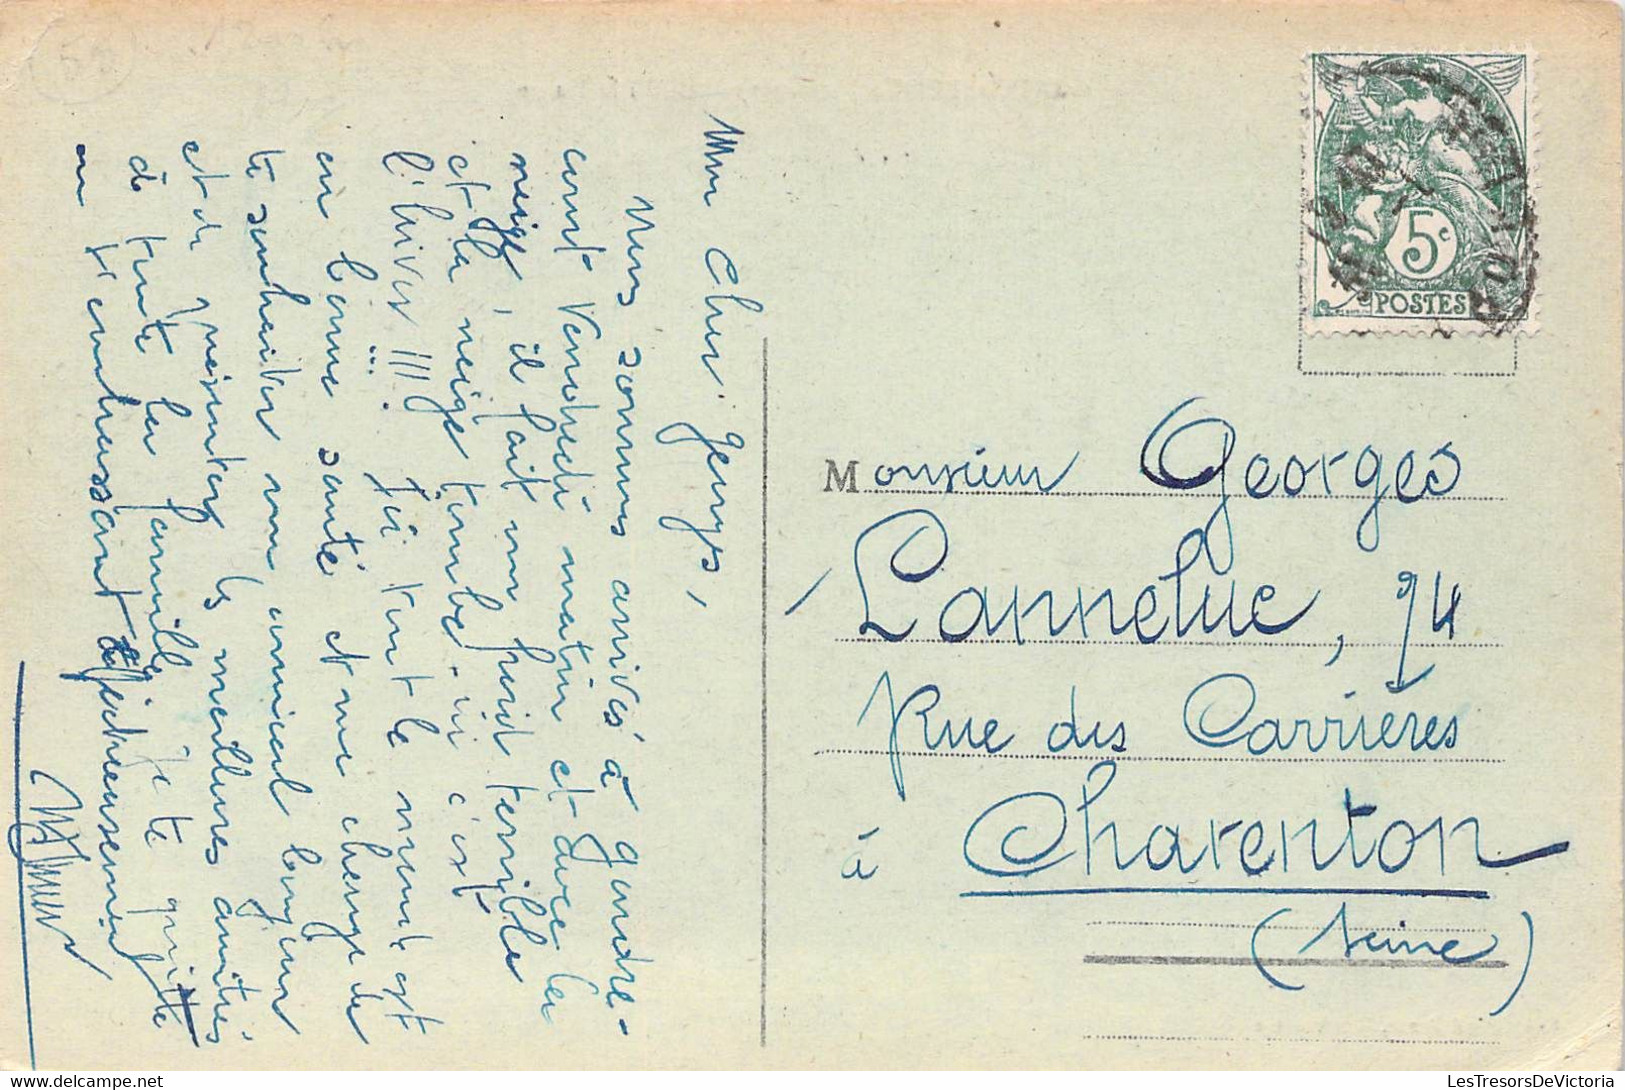 Mon Cher Georges,
Nous sommes arrivés à Gondre-
court Vendredi matin et avec la
neige, il fait un froid terrible
et la neige tombe. ici c'est
l'hiver !!! Ici tout le monde est
en bonne santé et me charge de
te souhaiter un amical bonjour
et de présenter les meilleures amitiés
à toute la famille. Je te quitte
en t'embrassant affectueusement
5c
POSTES
Monsieur Georges
Lanneluc, 94
Rue des Carrières
à Charenton
(Seine)
LesTresorsDeVictoria